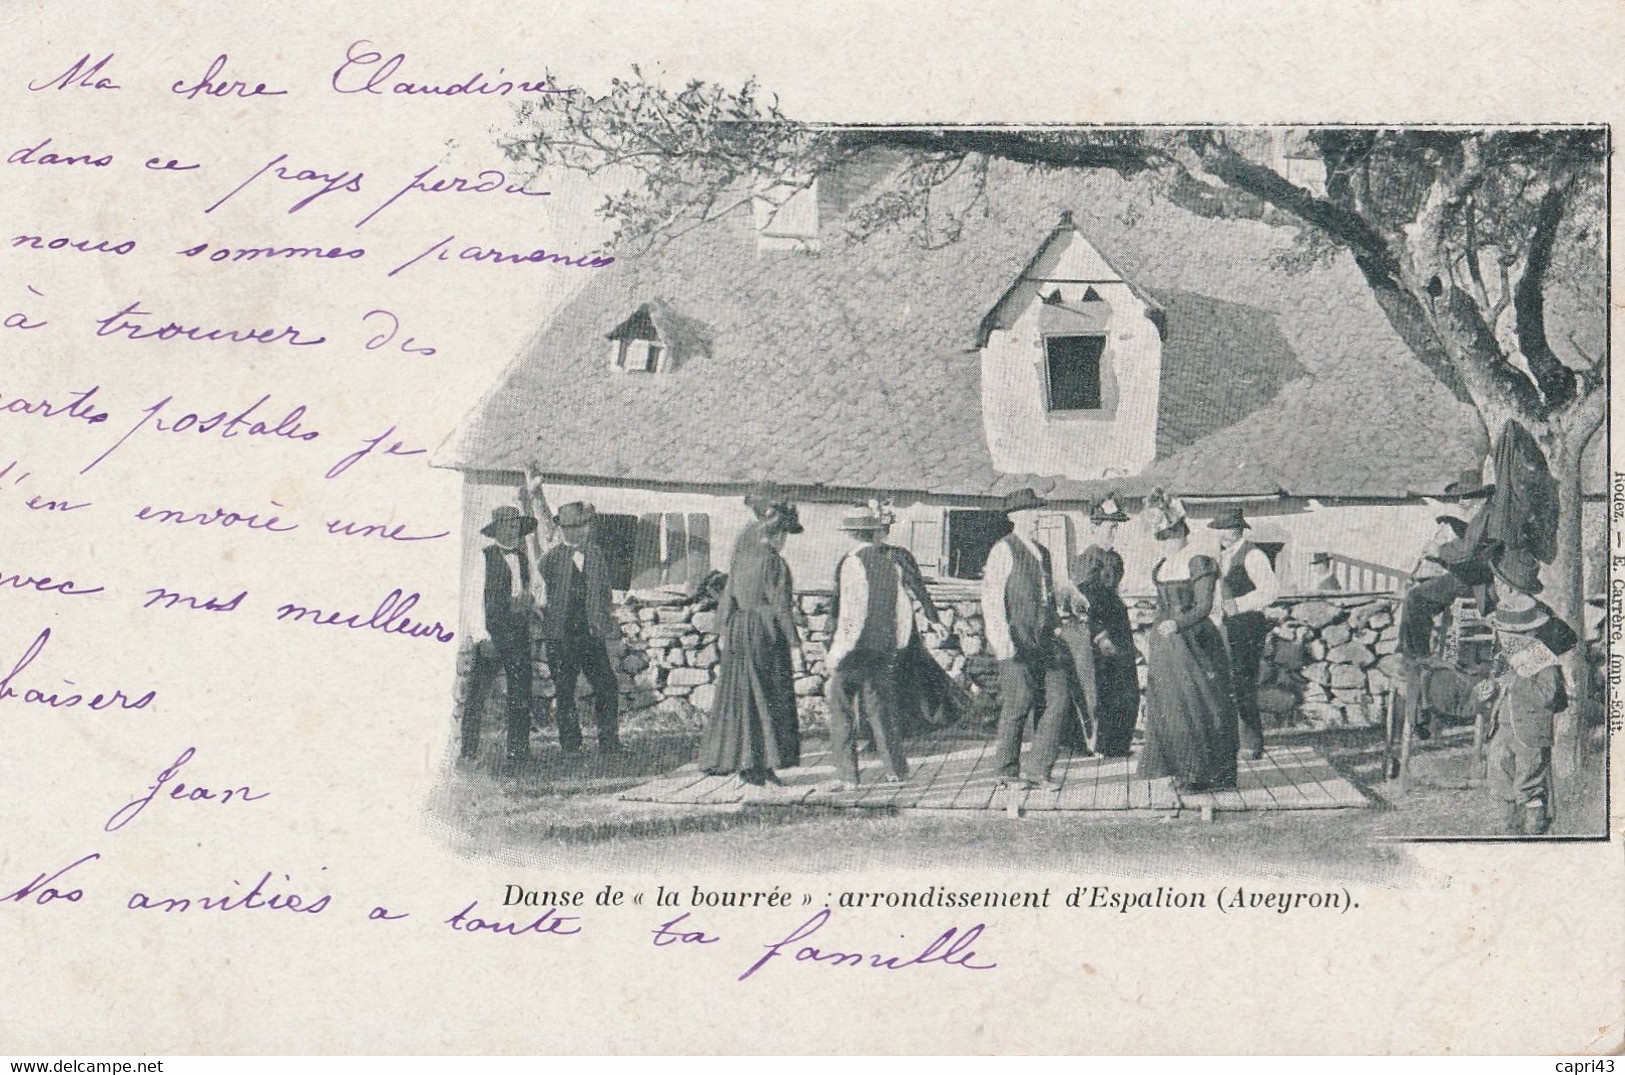 Ma chere Claudine
dans ce pays perdu
nous sommes parvenus
à trouver des
cartes postales je
t'en envoie une
avec mes meilleurs
baisers
Jean
Nos amitiés a toute ta famille
Danse de « la bourrée » : arrondissement d'Espalion (Aveyron).
Rodez. — E. Carrère, Imp.-Edit.
delcampe.net
capri43